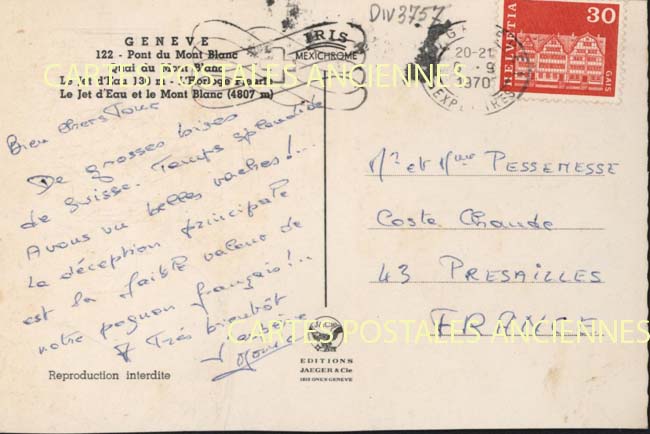 DIV3757
GENEVE
122 - Pont du Mont Blanc
Quai du Mont Blanc
Le Jet d'Eau et le Mont Blanc (4807 m)
IRIS
MEXICHROME
20-21
1970
HELVETIA
30
GAIS
CARTES POSTALES ANCIENNES
Bien chers Tous
De grosses bises
de Suisse. Temps splendide
Avons vu belles vaches!...
La déception principale
est la faible valeur de
notre pognon français!..
Très bientôt
Mr et Mme PESSEMESSE
Coste Chaude
43 PRESAILLES
FRANCE
CARTES POSTALES ANCIENNES
EDITIONS
JAEGER & Cie
1213 ONEX-GENEVE
Reproduction interdite